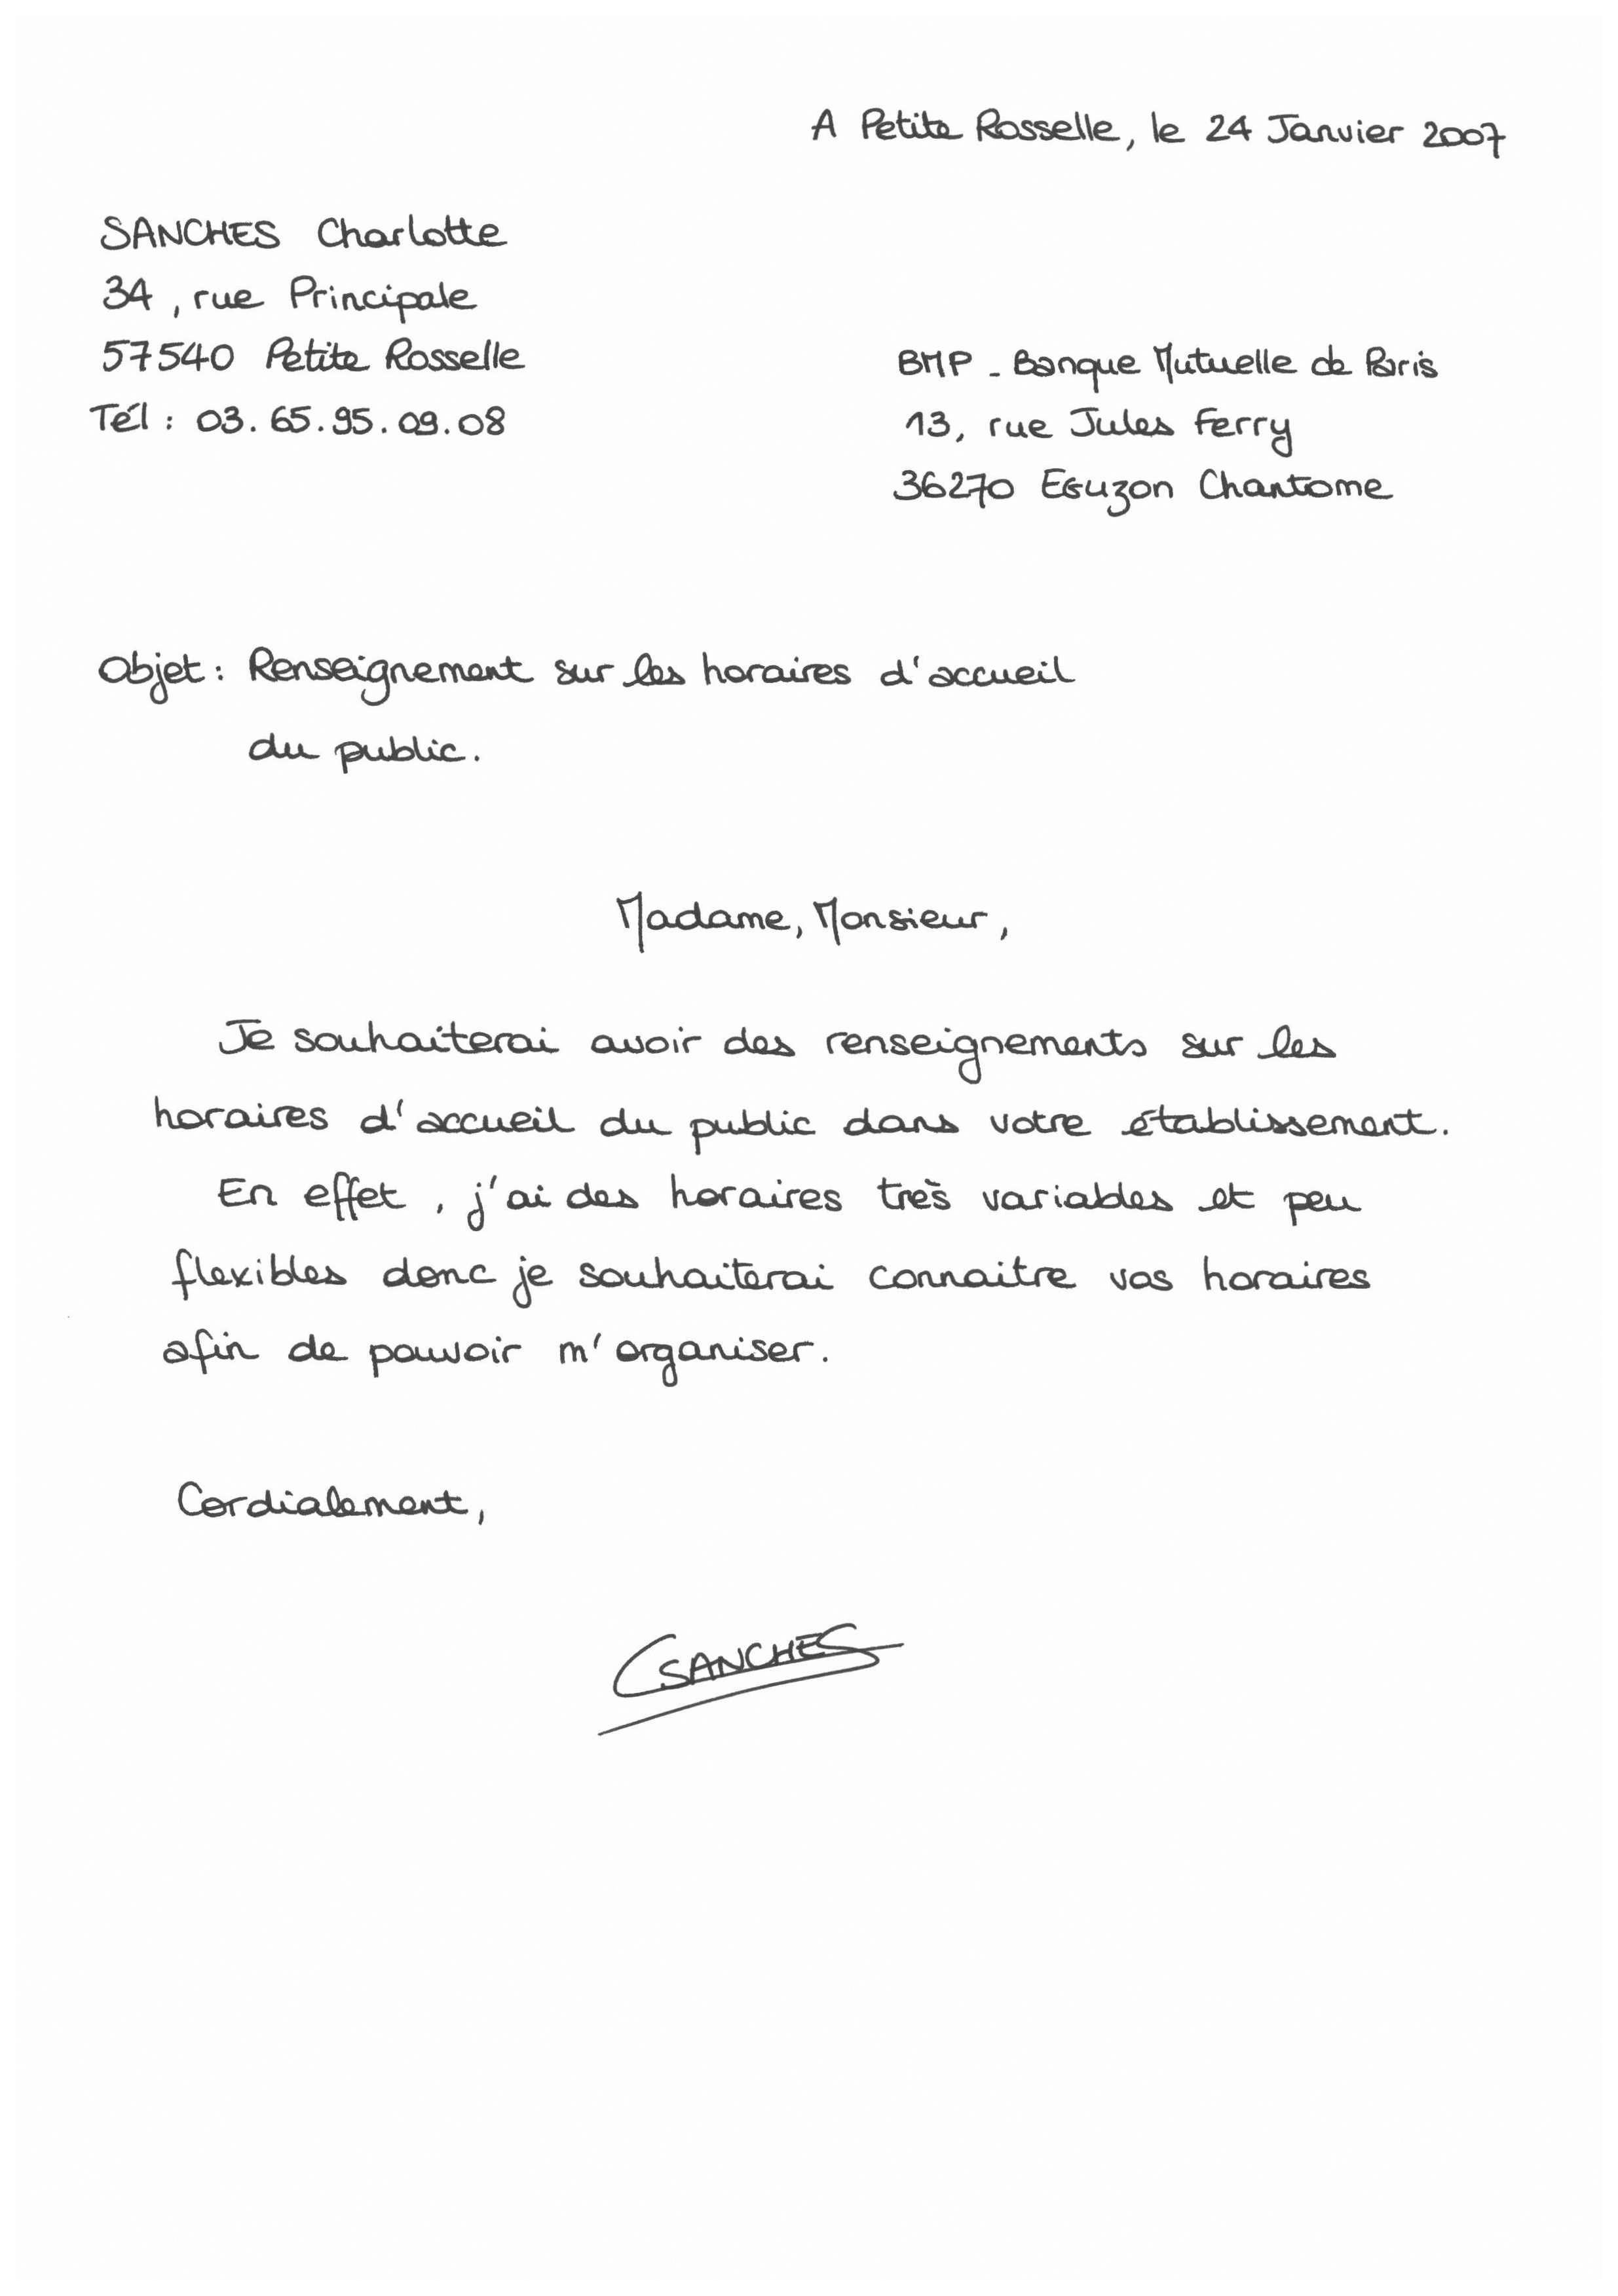 A Petite Rosselle, le 24 Janvier 2007
SANCHES Charlotte
34, rue Principale
57540 Petite Rosselle
Tél : 03. 65. 95. 09. 08
BMP - Banque Mutuelle de Paris
13, rue Jules Ferry
36270 Eguzon Chantome
Objet : Renseignement sur les horaires d'accueil
du public.
Madame, Monsieur,
Je souhaiterai avoir des renseignements sur les
horaires d'accueil du public dans votre établissement.
En effet, j'ai des horaires très variables et peu
flexibles donc je souhaiterai connaitre vos horaires
afin de pouvoir m'organiser.
Cordialement,
CSANCHES